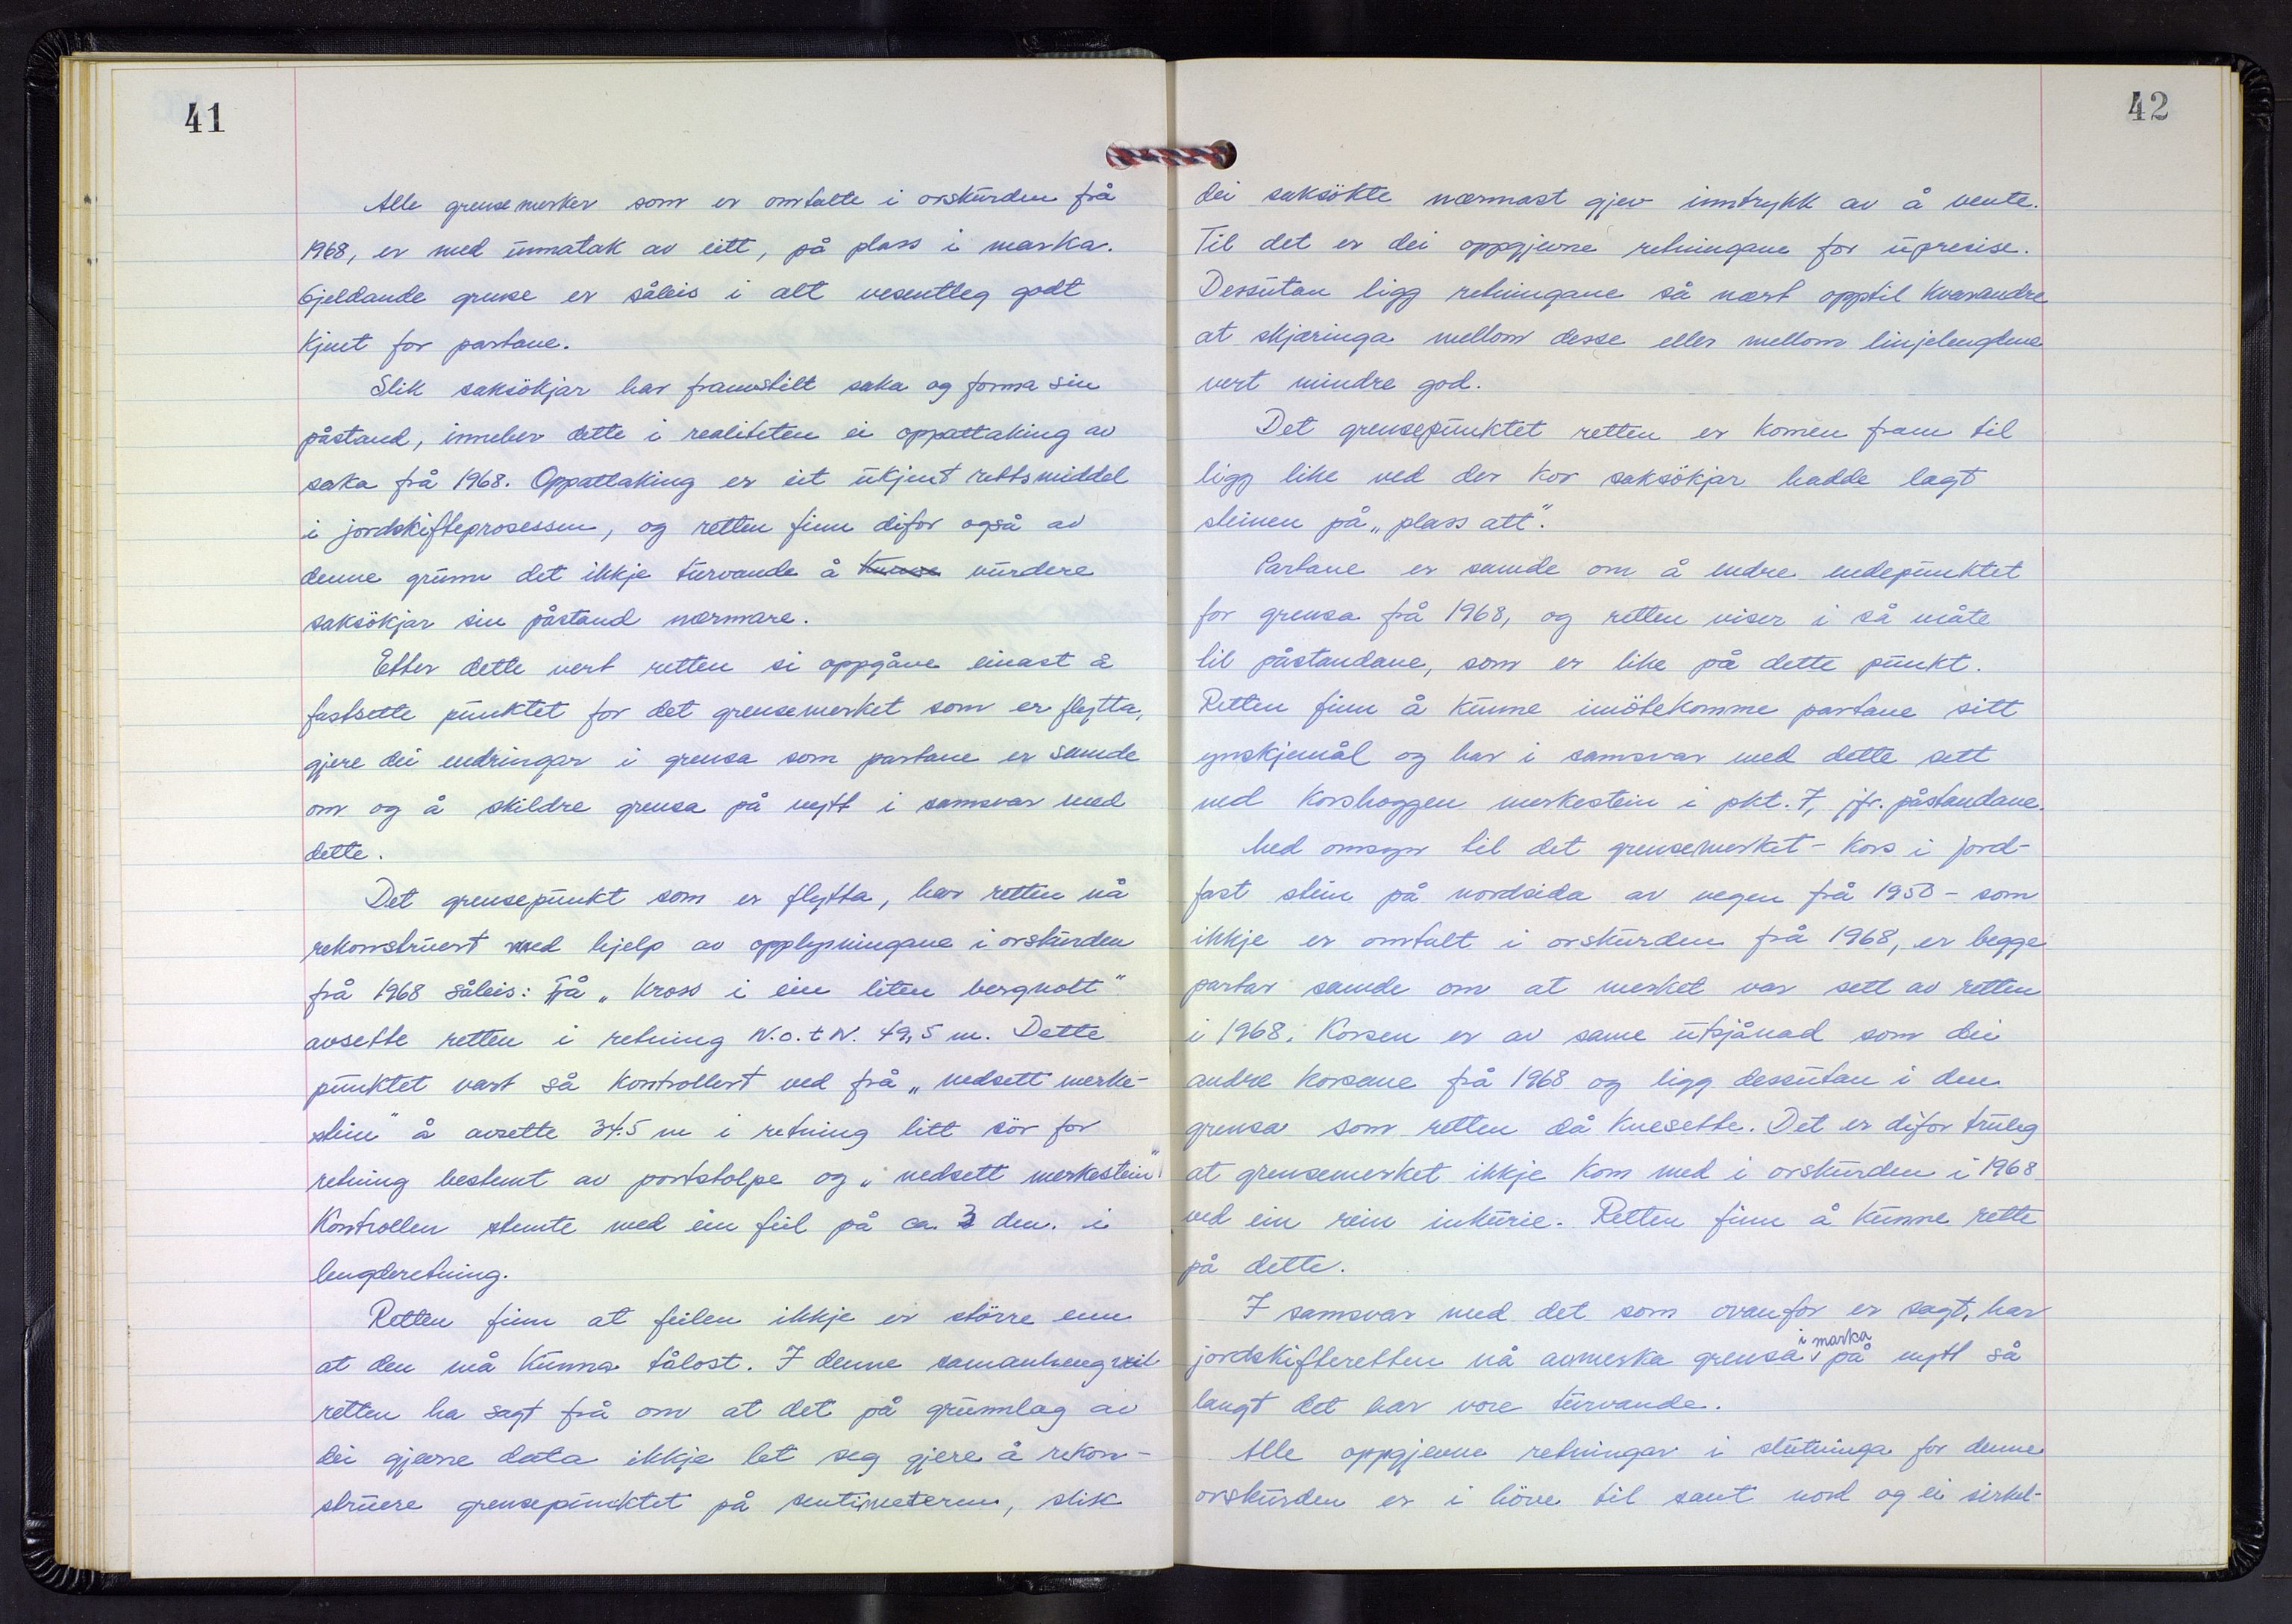 41
Alle grensemerker som er omtalte i orskurden frå
1968, er med unnatak av eitt, på plass i marka.
Gjeldande grense er såleis i alt vesentleg godt
kjent for partane.
Slik saksökjar har framstilt saka og forma sin
påstand, inneber dette i realiteten ei oppattaking av
saka frå 1968. Oppattaking er eit ukjent rettsmiddel
i jordskifteprosessen, og retten finn difor også av
denne grunn det ikkje turvande å kunne vurdere
saksökjar sin påstand nærmare.
Etter dette vert retten si oppgåve einast å
fastsette punktet for det grensemerket som er flytta,
gjere dei endringar i grensa som partane er samde
om og å skildre grensa på nytt i samsvar med
dette.
Det grensepunkt som er flytta, har retten nå
rekonstruert med hjelp av opplysningane i orskurden
frå 1968 såleis: Frå „Kross i ein liten bergnott"
avsette retten i retning N.o.t N. 49,5 m. Dette
punktet vart så kontrollert ved frå „nedsett merke-
stein" å avsette 34.5 m i retning litt sör for
retning bestemt av portstolpe og „nedsett merkestein"
Kontrollen stemte med ein feil på ca. 3 dm. i
lengderetning.
Retten finn at feilen ikkje er större enn
at den må kunna tålast. I denne samanheng vil
retten ha sagt frå om at det på grunnlag av
dei gjevne data ikkje let seg gjere å rekon-
struere grensepunktet på sentimeteren, slik
42
dei saksökte nærmast gjev inntrykk av å vente.
Til det er dei oppgjevne retningane for upresise.
Dessutan ligg retningane så nært opptil kvarandre
at skjæringa mellom desse eller mellom linjelengdene
vert mindre god.
Det grensepunktet retten er komen fram til
ligg like ved der kor saksökjar hadde lagt
steinen på „plass att".
Partane er samde om å endre endepunktet
for grensa frå 1968, og retten viser i så måte
til påstandane, som er like på dette punkt.
Retten finn å kunne imötekomme partane sitt
ynskjemål og har i samsvar med dette sett
ned korshoggen merkestein i pkt. 7, jfr. påstandane.
Med omsyn til det grensemerket - kors i jord-
fast stein på nordsida av vegen frå 1950 - som
ikkje er omtalt i orskurden frå 1968, er begge
partar samde om at merket var sett av retten
i 1968. Korsen er av same utsjånad som dei
andre korsene frå 1968 og ligg dessutan i den
grensa som retten då knesette. Det er difor truleg
at grensemerket ikkje kom med i orskurden i 1968
ved ein rein inkurie. Retten finn å kunne rette
på dette.
I samsvar med det som ovanfor er sagt, har
jordskifteretten nå avmerka grensa i marka på nytt så
langt det har vore turvande.
Alle oppgjevne retningar i slutninga for denne
orskurden er i höve til sant nord og ei sirkel-